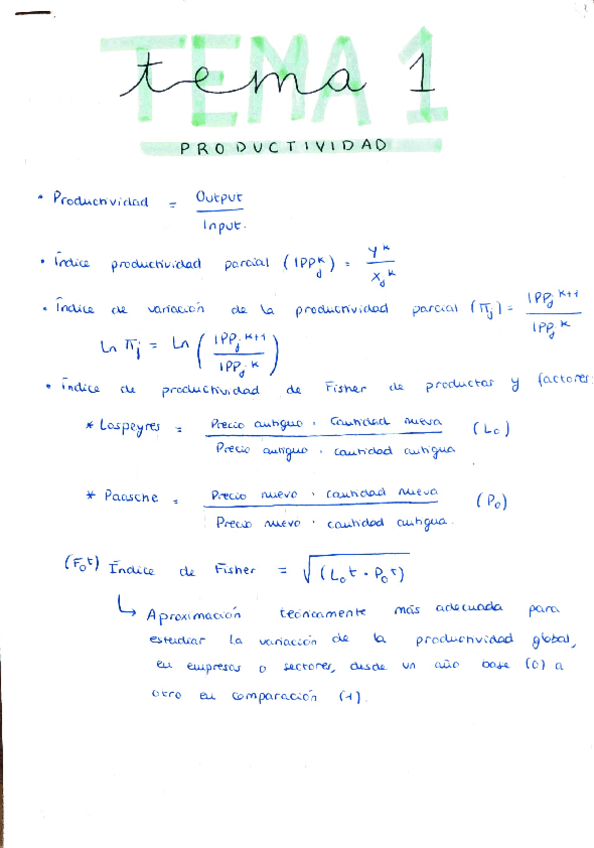 TEMA 1
tema 1
PRODUCTIVIDAD
• Productividad = Output / Input.
• Índice productividad parcial (IPPj^k) = Y^k / Xj^k
• Índice de variación de la productividad parcial (πj) = IPPj^k+1 / IPPj^k
Ln πj = Ln (IPPj^k+1 / IPPj^k)
• Índice de productividad de Fisher de productos y factores:
* Laspeyres = Precio antiguo · Cantidad nueva / Precio antiguo · cantidad antigua (L0)
* Paasche = Precio nuevo · cantidad nueva / Precio nuevo · cantidad antigua. (P0)
(F0^t) Índice de Fisher = √(L0^t · P0^t)
↳ Aproximación técnicamente más adecuada para
estudiar la variación de la productividad global,
en empresas o sectores, desde un año base (0) a
otro en comparación (1).